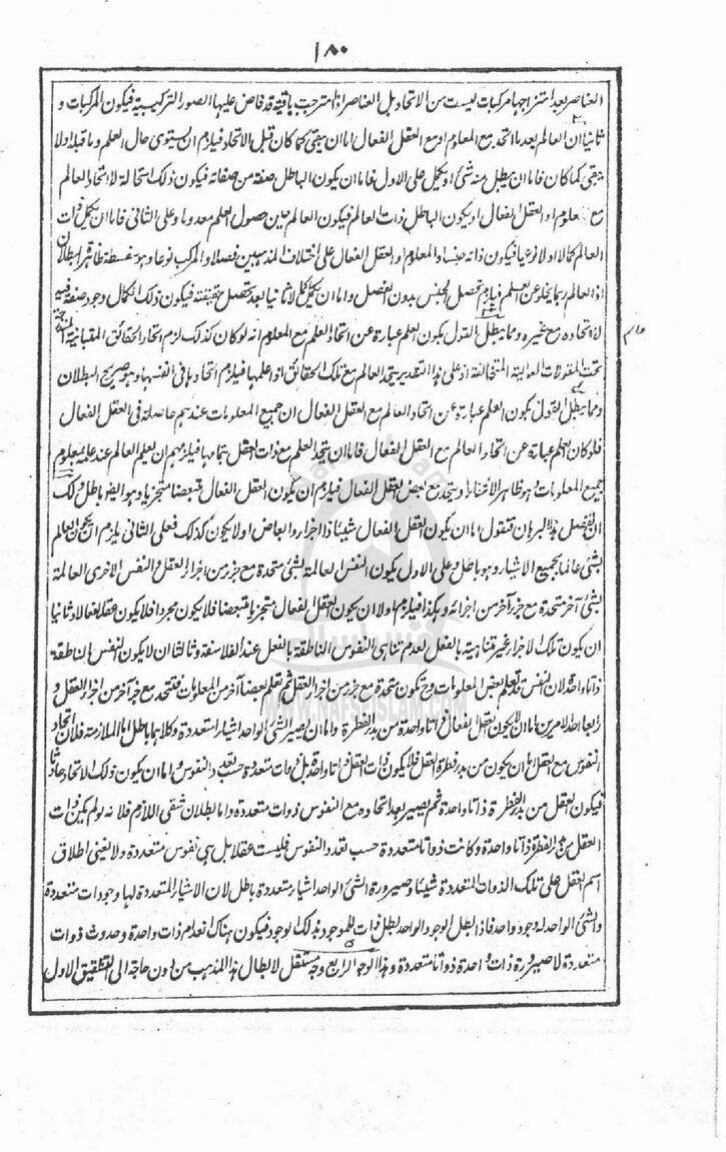 ١٨٠
العناصر بعد امتزاجها مركبات ليست من الاتحاد بل العناصر اذا امتزجت باقية قد فاض عليها الصور التركيبية فيكون المركبات و
ثانيا ان العالم بعد ما اتحد مع المعلوم او مع العقل الفعال اما ان يبقى كما كان قبل الاتحاد فيلزم ان يستوى حال العلم وما قبله او لا
يبقى كما كان فاما ان يبطل منه شئ او يكمل على الاول فاما ان يكون الباطل صفة من صفاته فيكون ذلك استحالة لا اتحاد العالم
مع المعلوم او العقل الفعال او يكون الباطل ذات العالم فيكون العالم حين حصول العلم معدوما وعلى الثانى فاما ان يكمل ذات
العالم كمالا اوليا نوعيا فيكون ذاته جنسا والمعلوم والعقل الفعال على اختلاف المذهبين فصلا والمركب نوعا وهو سفسطة ظاهر البطلان
اذ العالم ربما يخلو عن العلم فيلزم تحصل الجنس بدون الفصل واما ان يكمل كمالا ثانيا بعد تحصل حقيقته فيكون ذلك الكمال وجود صفة فيه
لا اتحاده مع غيره ومما يبطل القول بكون العلم عبارة عن اتحاد العلم مع المعلوم انه لو كان كذلك لزم اتحاد الحقائق المتباينة المندرجة
تحت المقولات العالية المتخالفة اذ على هذا التقدير يتحد العالم مع تلك الحقائق اذا علمها فيلزم اتحادها فى انفسها وهو صريح البطلان
ومما يبطل القول بكون العلم عبارة عن اتحاد العالم مع العقل الفعال ان جميع المعلومات عندهم حاصلة فى العقل الفعال
فلو كان العلم عبارة عن اتحاد العالم مع العقل الفعال فاما ان يتحد العلم مع ذات العقل بتمامها فيلزمهم ان يعلم العالم عند علمه بمعلوم
جميع المعلومات وهو ظاهر الاختار او يتحد مع بعض العقل الفعال فيلزم ان يكون العقل الفعال متبعضا متجزيا وهو ايضا باطل ولك
ان تفصل هذا البرهان فتقول اما ان يكون العقل الفعال شيئا ذا اجزاء وابعاض او لا يكون كذلك فعلى الثانى يلزم ان يكون العالم
بشئ عالما بجميع الاشياء وهو باطل وعلى الاول يكون النفس العالمة بشئ متحدة مع جزء من اجزاء العقل والنفس الاخرى العالمة
بشئ آخر متحدة مع جزء آخر من اجزائه وهكذا فيلزم اولا ان يكون العقل الفعال متجزيا متبعضا فلا يكون مجردا فلا يكون عقلا فعالا وثانيا
ان يكون تلك الاجزاء غير متناهية بالفعل لعدم تناهى النفوس الناطقة بالفعل عند الفلاسفة وثالثا ان لا يكون النفس الناطقة
ذاتا واحدة لان النفس قد تعلم بعض المعلومات وح تكون متحدة مع جزء من اجزاء العقل ثم تعلم بعضا آخر من المعلومات فتتحد مع جزء آخر من اجزاء العقل و
رابعا احد الامرين اما ان لا يكون العقل الفعال ذاتا واحدة من بدء الفطرة واما ان يصير الشئ الواحد اشياء متعددة وكلاهما باطل اما الملازمة فلان اتحاد
النفوس مع العقل اما ان يكون من بدء فطرة العقل فلا يكون ذات العقل ذاتا واحدة بل ذوات متعددة حسب تعدد النفوس واما ان يكون ذلك الاتحاد حادثا
فيكون العقل من بدء الفطرة ذاتا واحدة ثم يصير بعد اتحاده مع النفوس ذوات متعددة واما بطلان شقى اللازم فلانه لو لم يكن ذات
العقل من بدء الفطرة ذاتا واحدة وكانت ذواتا متعددة حسب تعدد النفوس فليست عقلا بل هى نفوس متعددة ولا يغنى اطلاق
اسم العقل على تلك الذوات المتعددة شيئا وصيرورة الشئ الواحد اشياء متعددة باطل لان الاشياء المتعددة لها وجودات متعددة
والشئ الواحد له وجود واحد فاذا بطل الوجود الواحد بطل ذات الموجود بذلك الوجود فيكون هناك انعدام ذات واحدة وحدوث ذوات
متعددة لا صيرورة ذات واحدة ذواتا متعددة وهذا الوجه الرابع وجه مستقل لابطال هذا المذهب من دون حاجة الى التشقيق الاول